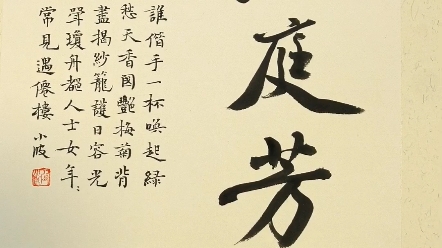 庭芳
誰偕手一杯喚起綠
愁天香國艷梅菊背
盡揭紗籠護日容光
聲瓊舟趂人士女年〻
常見遇僊樓 小波